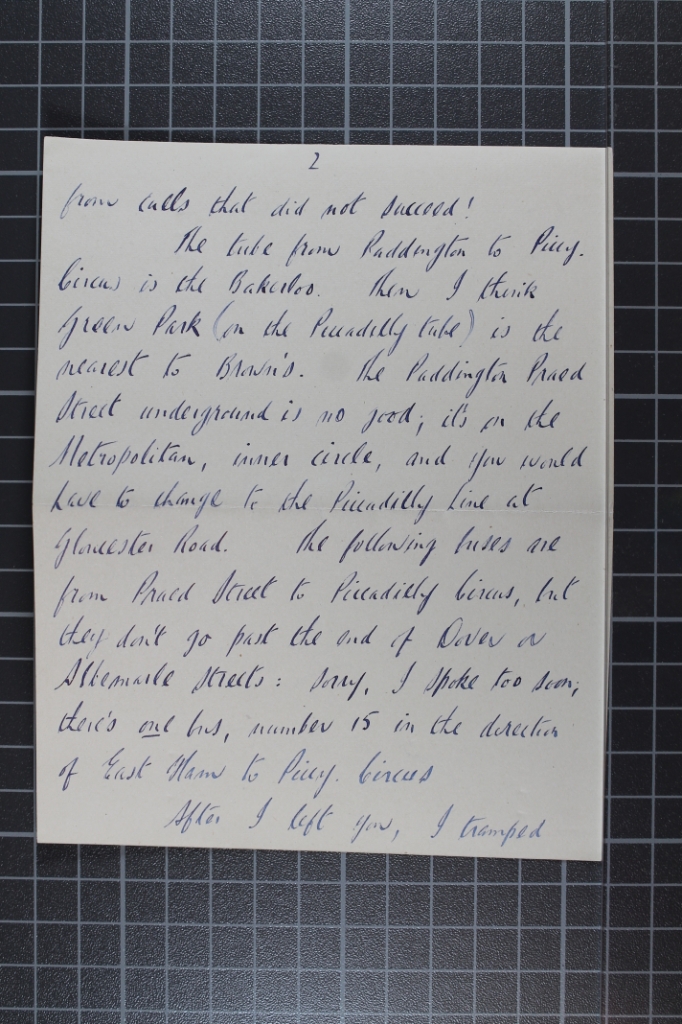 2
from calls that did not succeed!
The tube from Paddington to Piccy.
Circus is the Bakerloo. Then I think
Green Park (on the Piccadilly tube) is the
nearest to Brown's. The Paddington Praed
Street underground is no good; it's on the
Metropolitan, inner circle, and you would
have to change to the Piccadilly Line at
Gloucester Road. The following buses are
from Praed Street to Piccadilly Circus, but
they don't go past the end of Dover or
Albemarle Streets: Sorry, I spoke too soon;
there's one bus, number 15 in the direction
of East Ham to Piccy. Circus
After I left you, I tramped